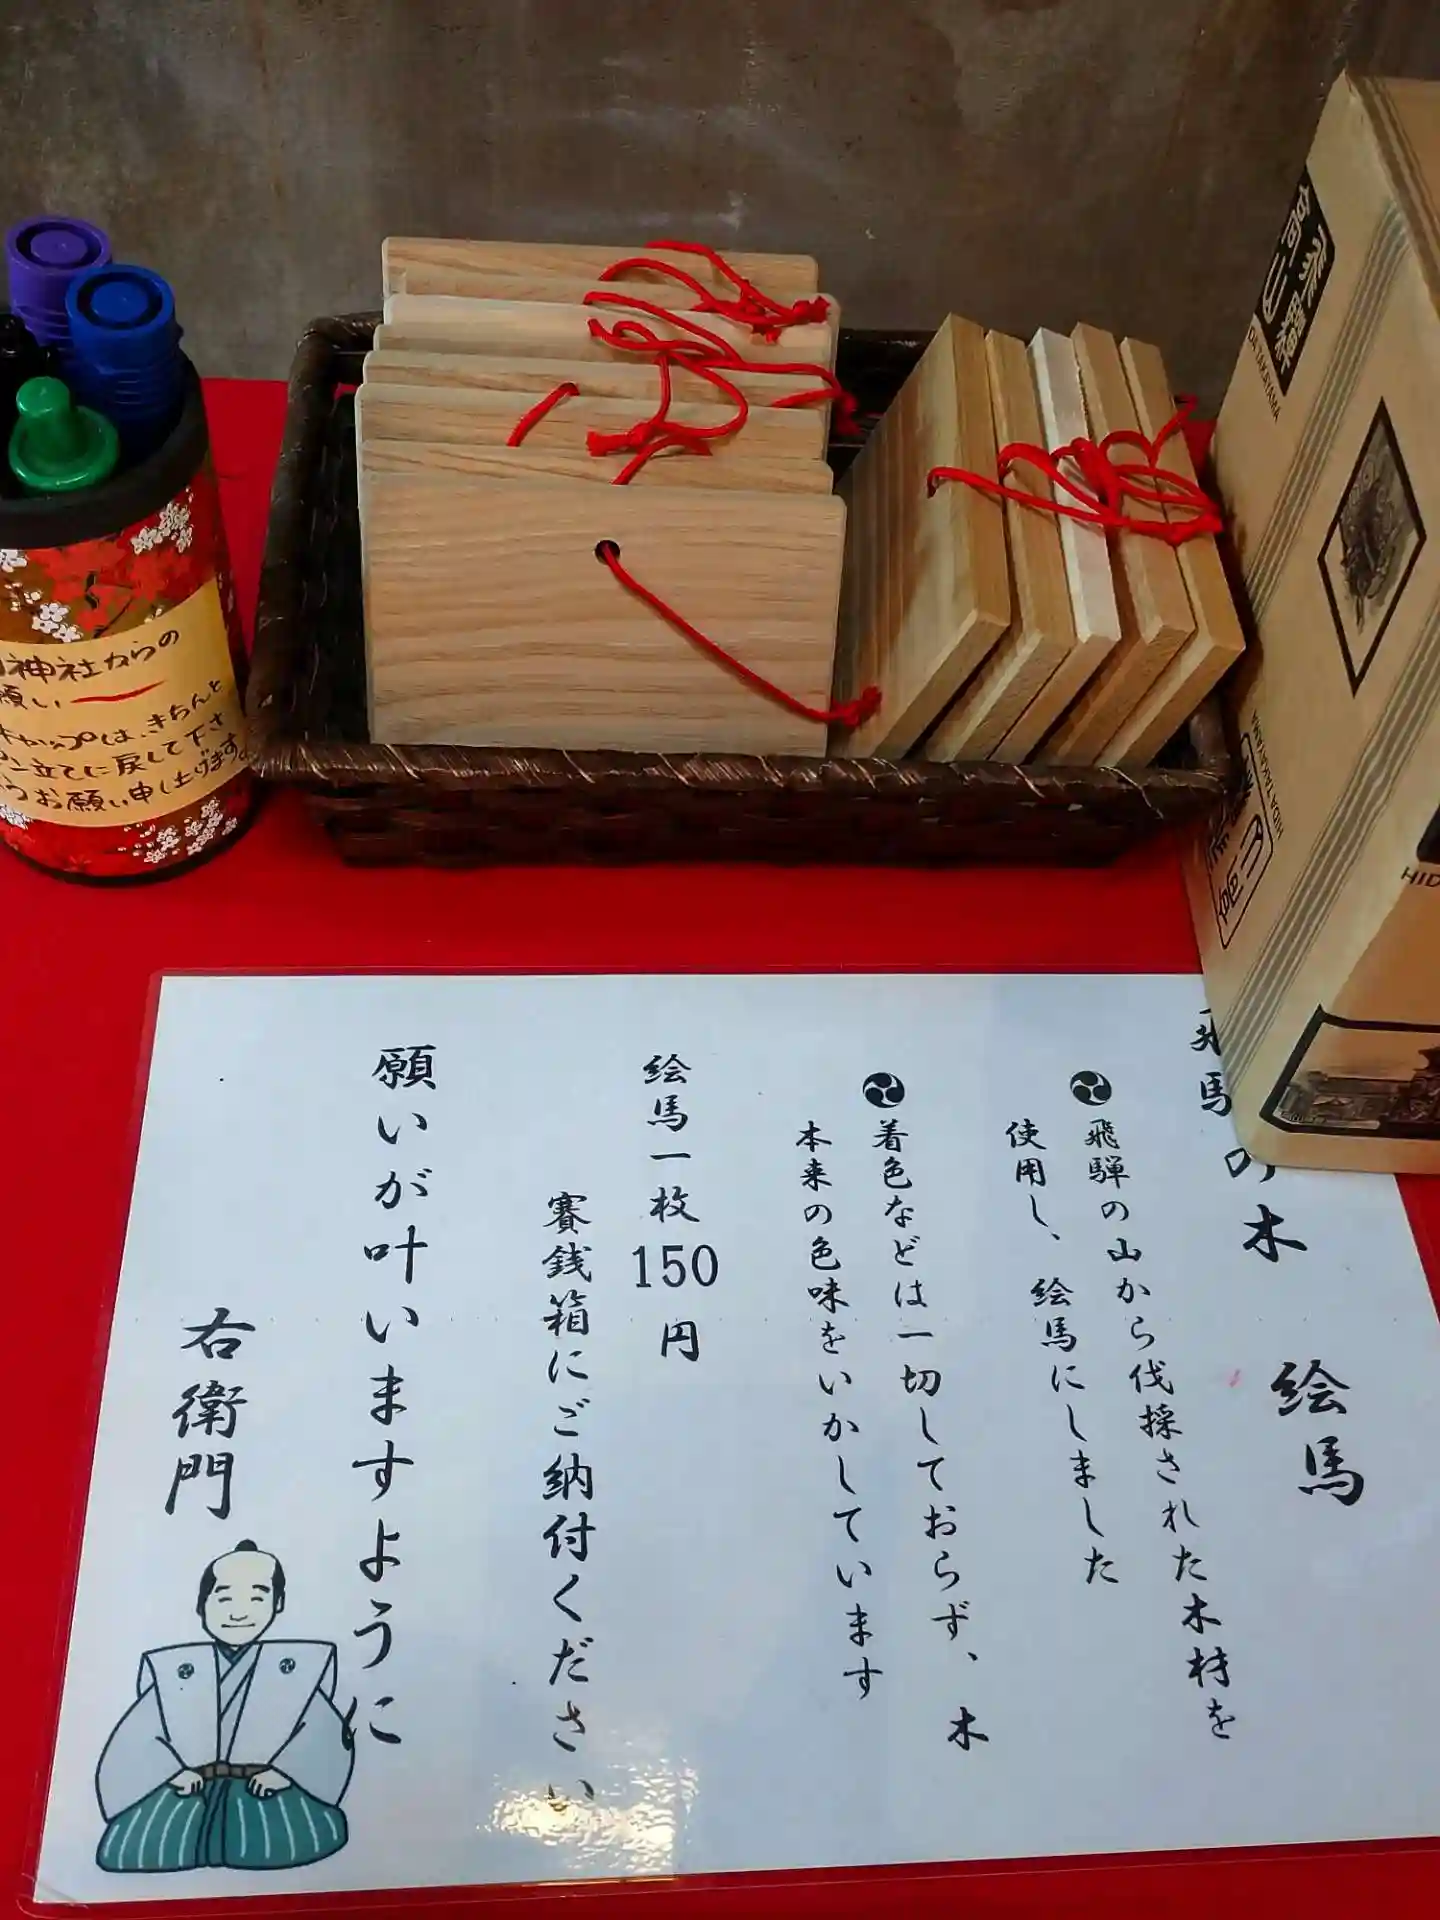 飛騨の木 絵馬
飛騨の山から伐採された木材を
使用し、絵馬にしました
着色などは一切しておらず、木
本来の色味をいかしています
絵馬一枚150円
賽銭箱にご納付ください
願いが叶いますように
右衛門
神社からの
願い
キャップは、きちんと
ペン立てに戻して下さ
お願い申し上げます
TAKAYAMA
HIDA TAKAYAMA
HID